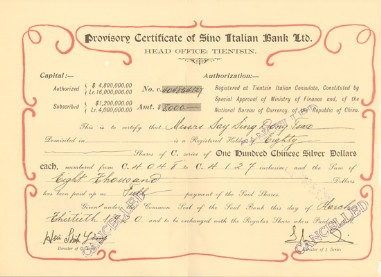 Provisory Certificate of Sino Italian Bank Ltd.
HEAD OFFICE: TIENTSIN.
Capital:—
Authorization:—
Authorized
$ 4,800,000.00
Lr. 16,000,000.00
No. c.
Subscribed
$1,200,000.00
Lr. 4,000,000.00
Amt. $ 8000
Registered at Tientsin Italian Consulate, Constituted by
Special Approval of Ministry of Finance and, of the
National Bureau of Currency, of the Republic of China
This is to certify that Messrs Say Sing
Domiciled in is a Registered Holder of Eighty
Shares of C. series of One Hundred Chinese Silver Dollars
each, numbered from C.H.048 to C.H.127 inclusive, and the Sum of
Eight Thousand Dollars
has been paid up as Full payment of the Said Shares.
Given under the Common Seal of the Said Bank this day of March
Thirtieth 1920 and to be exchanged with the Regular Share when Printed.
CANCELLED
CANCELLED
CANCELLED